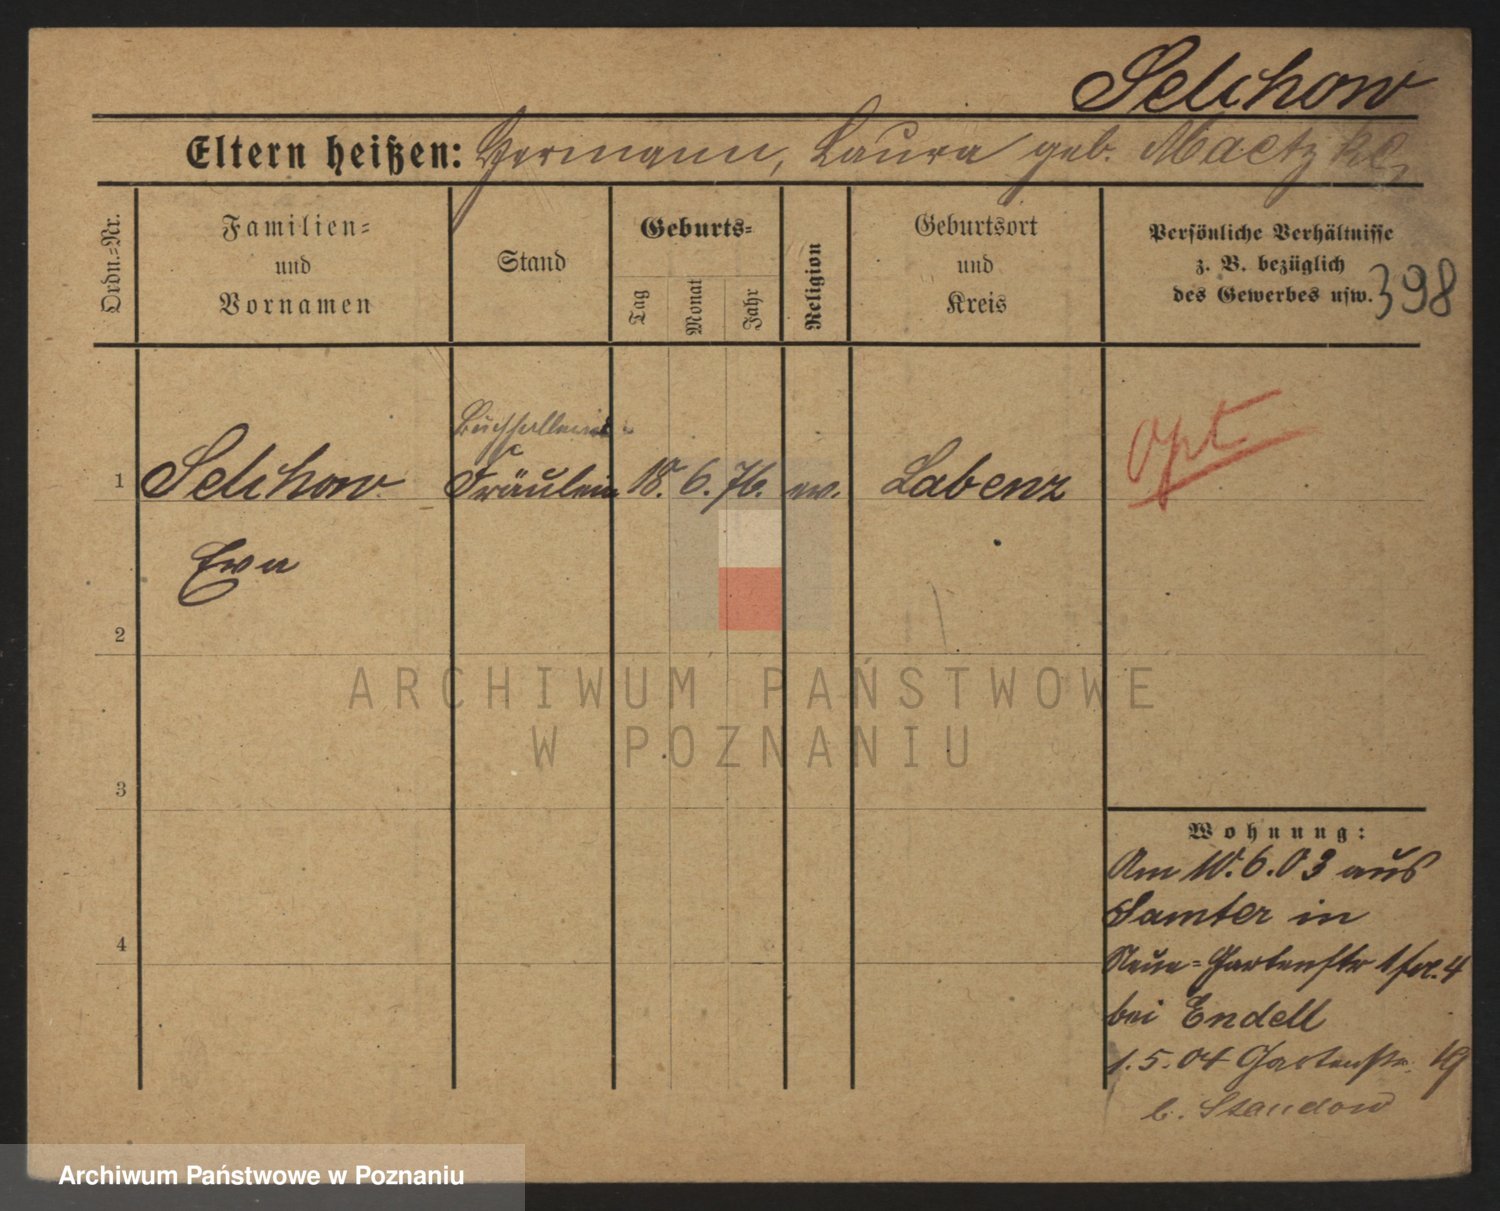 Selchow
Eltern heißen: Hermann, Laura geb. Maetzke,
Ordn.-Nr.
Familien-
und
Vornamen
Stand
Geburts-
Tag
Monat
Jahr
Religion
Geburtsort
und
Kreis
Persönliche Verhältnisse
z. B. bezüglich
des Gewerbes usw.
398
Buchhalterin
1 Selchow Fräulein 18. 6. 76. ev. Labenz
opt
Eva
2
ARCHIWUM PAŃSTWOWE
W POZNANIU
3
4
Wohnung:
Am 10.6.03 aus
Samter in
Neue-Gartenstr 1 4
bei Endell
1.5.04 Gartenstr. 19
b. Standow
Archiwum Państwowe w Poznaniu